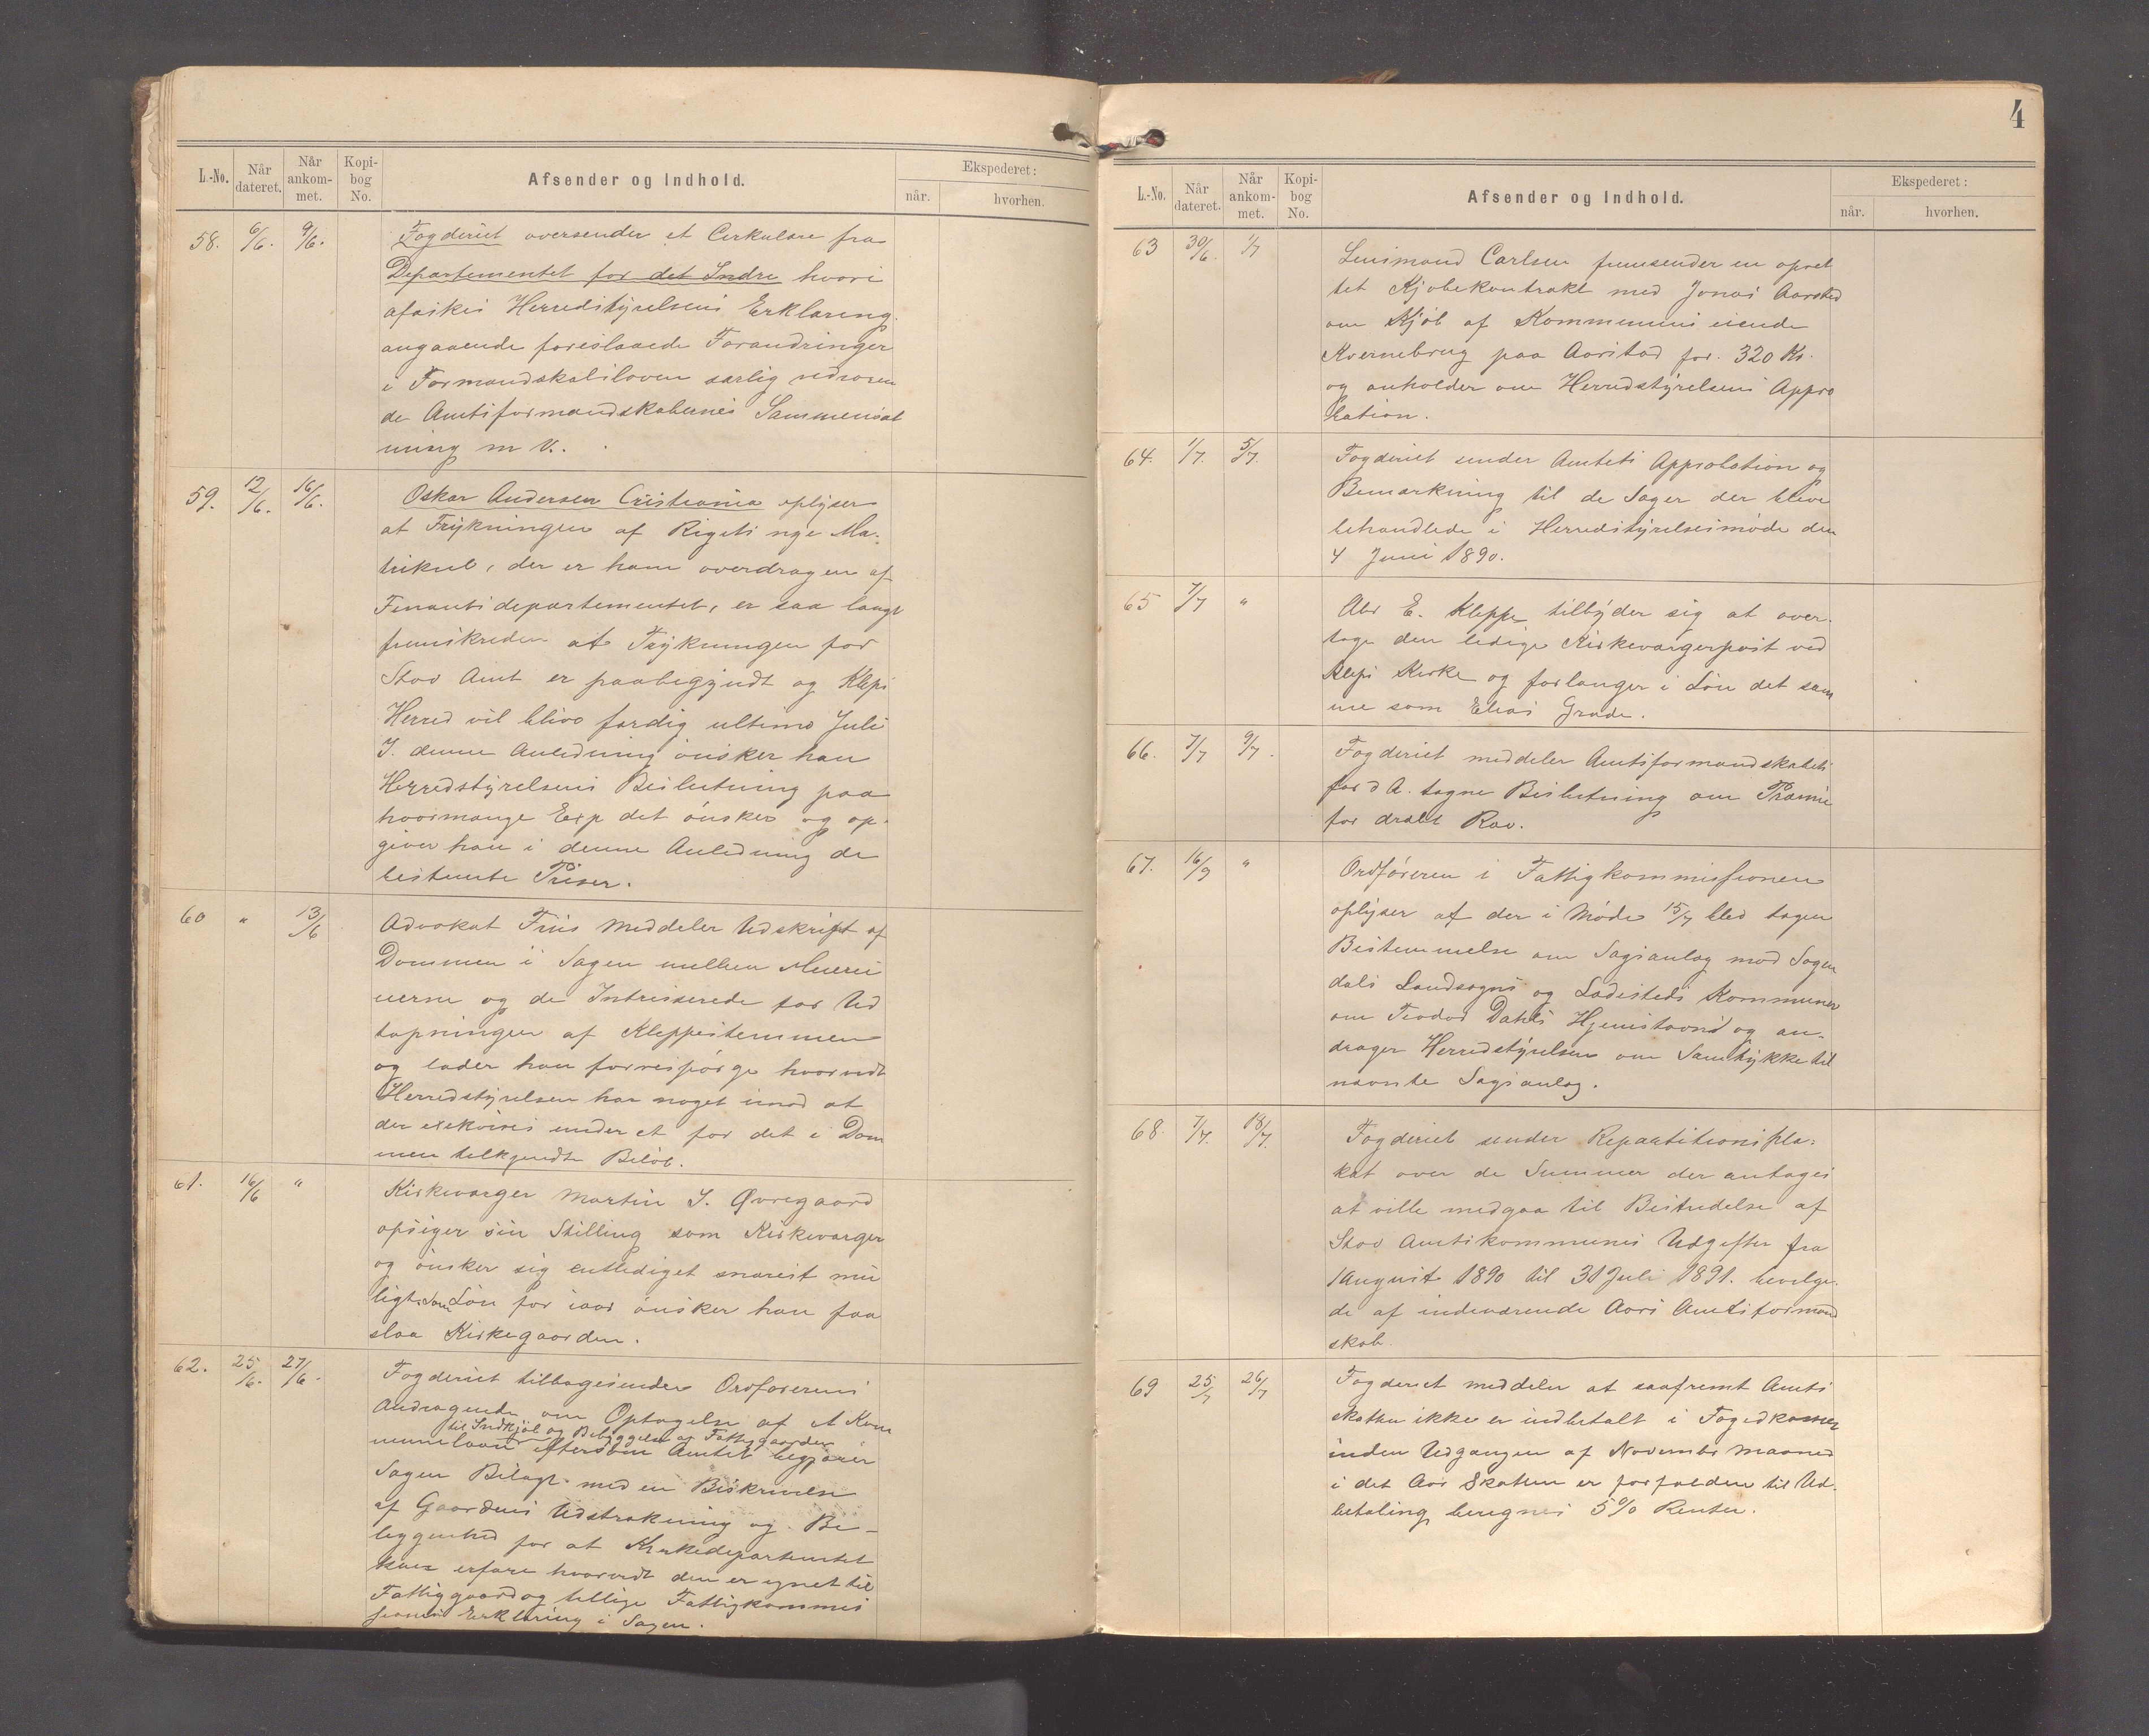 L.-No. Når dateret. Når ankommet. Kopibog No. Afsender og Indhold. Ekspederet: når. hvorhen.
58. 6/6. 9/6. Fogderiet oversender et Cirkulære fra
Departementet for det Indre hvori
afæskes Herredstyrelsens Erklæring
angaaende foreslaaede Forandringer
i Formandskabsloven særlig vedrøren
de Amtsformandskabernes Sammensæt
ning m V.
59. 12/6. 16/6. Oskar Andersen Cristiania oplyser
at Trykningen af Rigets nye Ma-
trikul, der er ham overdragen af
Finantsdepartementet, er saa langt
fremskreden at Trykningen for
Stav Amt er paabegyndt og Kleps
Herred vil blive færdig ultimo Juli
I. denne Anledning ønsker han
Herredstyrelsens Beslutning paa
hvormange Exp det ønsker og op-
giver han i denne Anledning de
bestemte Priser.
60 " 13/6 Advokat Friis Meddeler Udskrift af
Dommen i Sagen mellem Meieri
eierne og de Intresserede for Ud
tapningen af Kleppestemmen
og lader han forrespørge hvorvidt
Herredstyrelsen har noget imod at
der exekveres under et for det i Dom
men tilkjendte Beløb.
61. 16/6 " Kirkeværger Martin I. Øvregaard
opsiger sin Stilling som Kirkeværger
og ønsker sig entlediget snarest mu
ligt. Som Løn for iaar ønsker han faa
slaa Kirkegaarden.
62. 25/6. 27/6. Fogderiet tilbagesender Ordførerens
Andragende om Optagelse af et Kom
til Indkjøb og Bebyggelse af Fattiggaarden
munelaan eftersom Amtet begjærer
Sagen Bilagt med en Beskrivelse
af Gaardens Udstrækning og Be-
liggenhed for at Kirkedepartementet
kan erfare hvorvidt den er egnet til
Fattiggaard og tillige Fattigkommis
sionens Erklæring i Sagen.
4
L.-No. Når dateret. Når ankommet. Kopibog No. Afsender og Indhold. Ekspederet: når. hvorhen.
63 30/6. 1/7 Lensmand Carlsen fremsender en opret
tet Kjøbekontrakt med Jonas Aarsted
om Kjøb af Kommunens eiende
Kvernebrug paa Aarstad for. 320 Kr.
og anholder om Herredstyrelsens Appro
bation.
64. 1/7. 5/7. Fogderiet sender Amtets Approbation og
Bemærkning til de Sager der bleve
behandlede i Herredstyrelsesmøde den
4 Juni 1890.
65 7/7 " Abr E. Kleppe tilbyder sig at over-
tage den ledige Kirkeværgerpost ved
Kleps Kirke og forlanger i Løn det sam
me som Elias Grude.
66. 7/7 9/7. Fogderiet meddeler Amtsformandskabets
for d A. tagne Beslutning om Præmie
for dræbt Rov.
67. 16/9 " Ordføreren i Fattigkommissionen
oplyser at der i Møde 15/7 blev tagen
Bestemmelse om Sagsanlæg mod Sogn
dals Landsogns og Ladesteds Kommuner
om Teodor Dahls Hjemstavns og an-
drager Herredstyrelsen om Samtykke til
nævnte Sagsanlæg.
68. 7/7. 18/7. Fogderiet sender Repartitionspla-
kat over de Summer der antages
at ville medgaa til Bestridelse af
Stav Amtskommunes Udgifter fra
1 August 1890 til 31 Juli 1891. bevilge-
de af indeværende Aars Amtsformand
skab.
69 25/7 26/7 Fogderiet meddeler at saafremt Amts
skatten ikke er indbetalt i Fogedkassen
inden Udgangen af November Maaned
i det Aar Skatten er forfalden til Ud-
betaling beregnes 5% Renter.